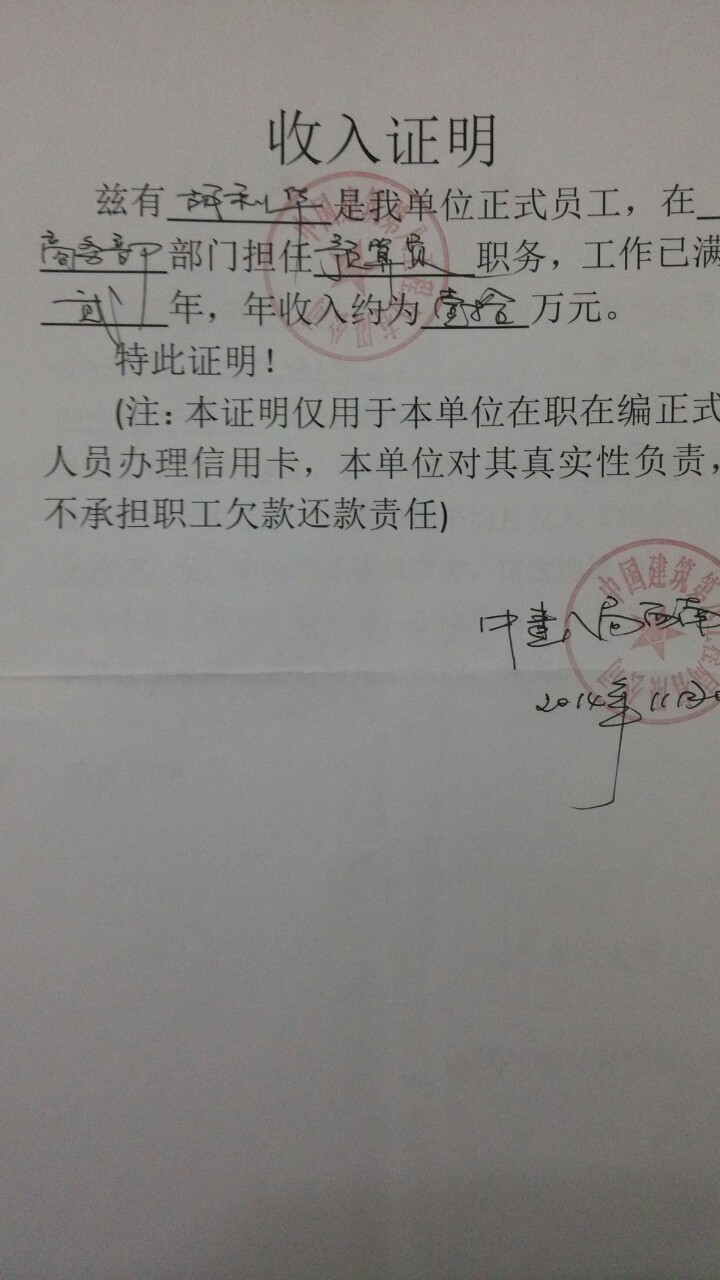 收入证明
兹有 利华 是我单位正式员工，在
商务部 部门担任 预算员 职务，工作已满
贰 年，年收入约为 壹拾 万元。
特此证明！
(注：本证明仅用于本单位在职在编正式
人员办理信用卡，本单位对其真实性负责，
不承担职工欠款还款责任)
中国建筑第
中建八局西南
2014年11月